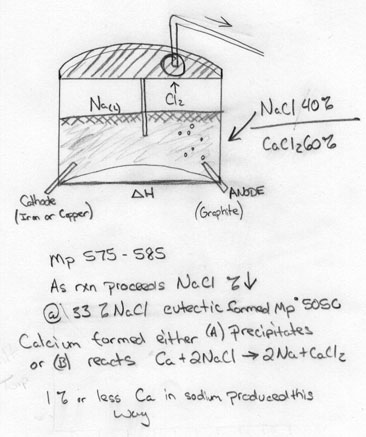 Na(l)
Cl2
NaCl 40%
CaCl2 60%
Cathode
(Iron or Copper)
ΔH
ANODE
(Graphite)
Mp 575 - 585
As rxn proceeds NaCl % ↓
@ 33 % NaCl eutectic formed Mp° 505C
Calcium formed either (A) Precipitates
or (B) reacts Ca + 2NaCl → 2Na + CaCl2
1% or less Ca in sodium produced this
way